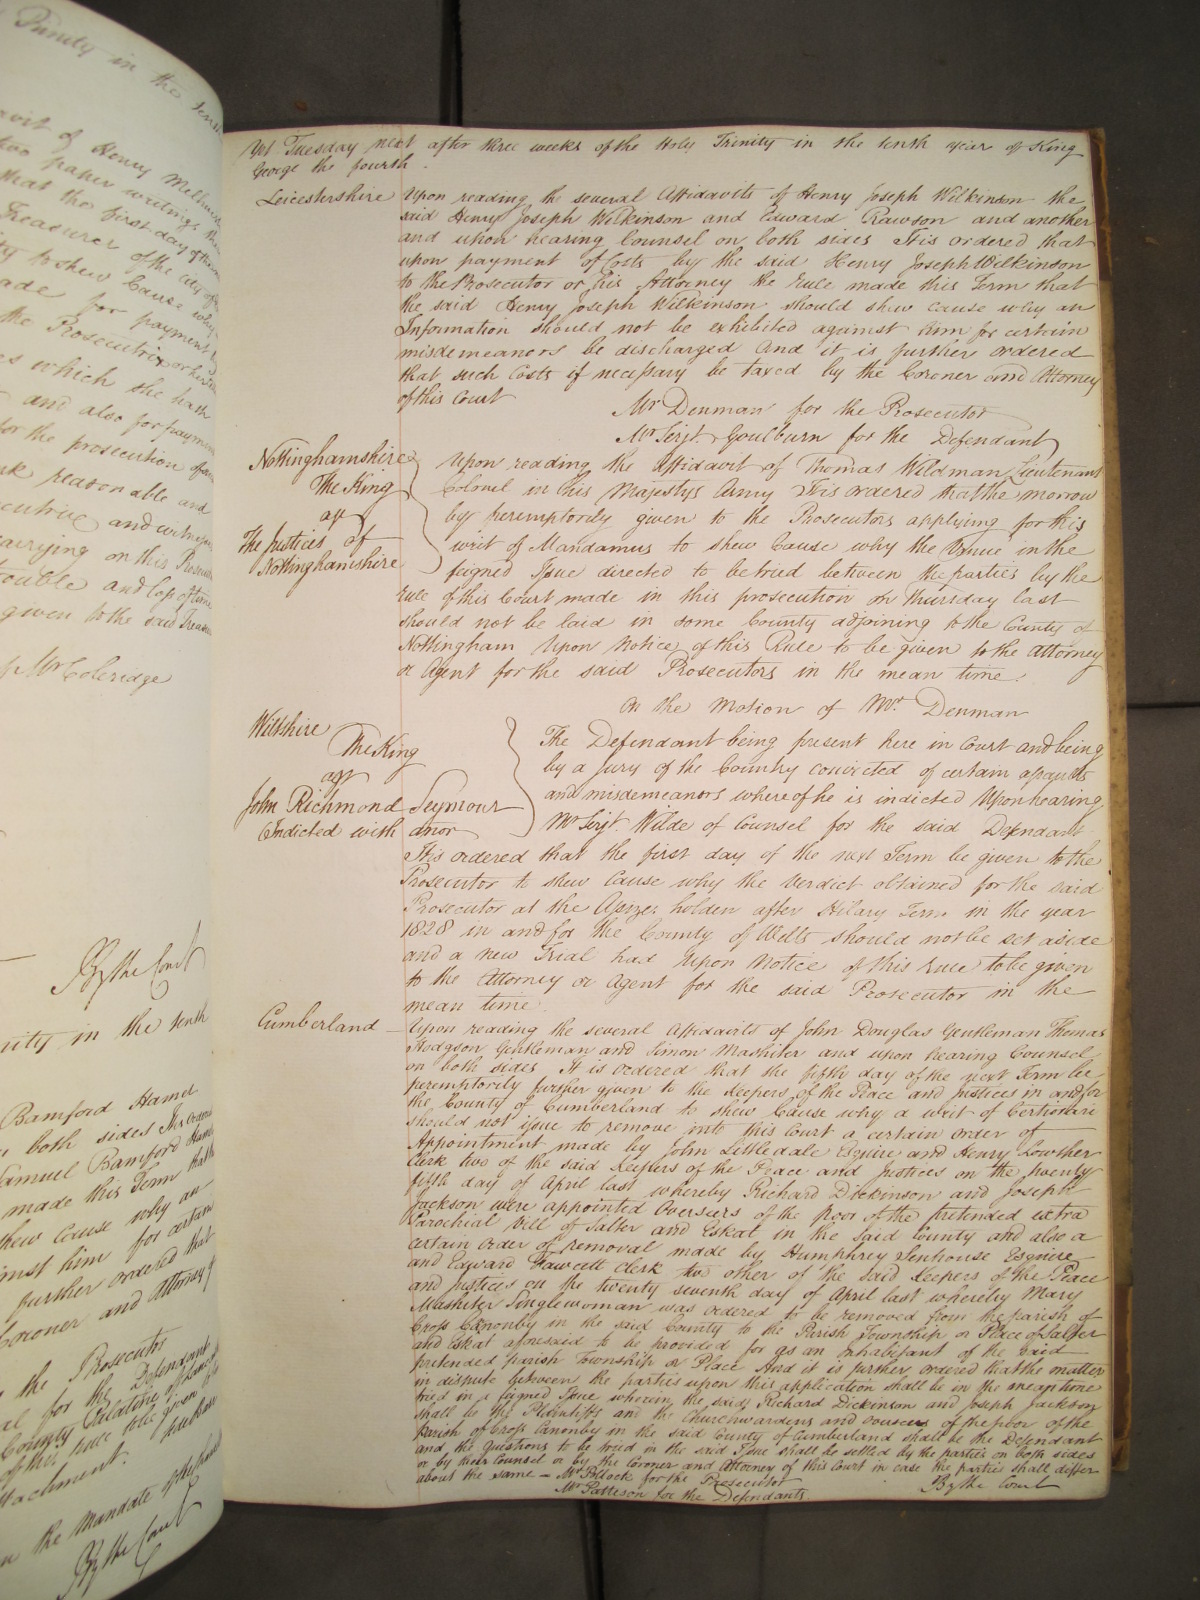 Yet Tuesday next after three weeks of the Holy Trinity in the tenth year of King
George the fourth
Leicestershire Upon reading the several Affidavits of Henry Joseph Wilkinson the
said Henry Joseph Wilkinson and Edward Rawson and another
and upon hearing Counsel on both sides It is ordered that
upon payment of Costs by the said Henry Joseph Wilkinson
to the Prosecutor or his Attorney the Rule made this Term that
the said Henry Joseph Wilkinson should shew cause why an
Information should not be exhibited against him for certain
misdemeanors be discharged And it is further ordered
that such Costs if necessary be taxed by the Coroner and Attorney
of this Court
Mr Denman for the Prosecutor
Mr Serjt. Goulburn for the Defendant
Nottinghamshire
The King
agt
The Justices of
Nottinghamshire
Upon reading the Affidavit of Thomas Wildman Lieutenant
Colonel in his Majestys Army It is ordered that the morrow
be peremptorily given to the Prosecutors applying for this
writ of Mandamus to shew Cause why the Venue in the
feigned Issue directed to be tried between the parties by the
rule of this Court made in this prosecution on Thursday last
should not be laid in some County adjoining to the County of
Nottingham Upon Notice of this Rule to be given to the Attorney
or Agent for the said Prosecutors in the mean time.
On the Motion of Mr. Denman
Wiltshire
The King
agt
John Richmond Seymour
Indicted with anor
The Defendant being present here in Court and being
by a Jury of the Country convicted of certain assaults
and misdemeanors whereof he is indicted Upon hearing
Mr Serjt. Wilde of Counsel for the said Defendant
It is ordered that the first day of the next Term be given to the
Prosecutor to shew Cause why the Verdict obtained for the said
Prosecutor at the Assizes holden after Hilary Term in the year
1828 in and for the County of Wilts should not be set aside
and a new Trial had Upon Notice of this rule to be given
to the Attorney or Agent for the said Prosecutor in the
mean time.
Cumberland Upon reading the several Affidavits of John Douglas Gentleman Thomas
Hodgson Gentleman and Simon Mashiter and upon hearing Counsel
on both sides It is ordered that the fifth day of the next Term be
peremptorily further given to the Keepers of the Peace and Justices in and for
the County of Cumberland to shew Cause why a writ of Certiorari
should not issue to remove into this Court a certain order of
Appointment made by John Littledale Esquire and Henry Lowther
Clerk two of the said Keepers of the Peace and Justices on the twenty
fifth day of April last whereby Richard Dickinson and Joseph
Jackson were appointed Overseers of the poor of the pretended extra
Parochial Vill of Salter and Eskat in the said County and also a
certain order of removal made by Humphrey Senhouse Esquire
and Edward Fawcett Clerk two other of the said Keepers of the Peace
and Justices on the twenty seventh day of April last whereby Mary
Mashiter Singlewoman was ordered to be removed from the parish of
Cross Canonby in the said County to the Parish Township or Place of Salter
and Eskat aforesaid to be provided for as an inhabitant of the said
pretended parish Township or Place And it is further ordered that the matter
in dispute between the parties upon this application shall be in the mean time
tried in a feigned Issue wherein the said Richard Dickinson and Joseph Jackson
shall be the Plaintiffs and the Churchwardens and overseers of the poor of the
parish of Cross Canonby in the said County of Cumberland shall be the Defendant
and the questions to be tried in the said Issue shall be settled by the parties on both sides
or by their Counsel or by the Coroner and Attorney of this Court in case the parties shall differ
about the same - Mr Pollock for the Prosecutor
Mr Patteson for the Defendants
By the Court
Trinity in the
of Henry
two paper writings
that the first day of
Treasurer of the City
to shew Cause why
for payment
the Prosecutrix or her
which she hath
and also for payment
for the prosecution
reasonable and
carrying on this
trouble and loss of time
given to the said
Mr Coleridge
By the Court
in the tenth
Bamford Hamel
both sides It is ordered
Samuel Bamford
made this Term that
shew cause why an
against him for certain
further ordered that
Coroner and Attorney of
the Prosecutor
for the Defendant
County Palatine
of the
the Mandate of
By the Court